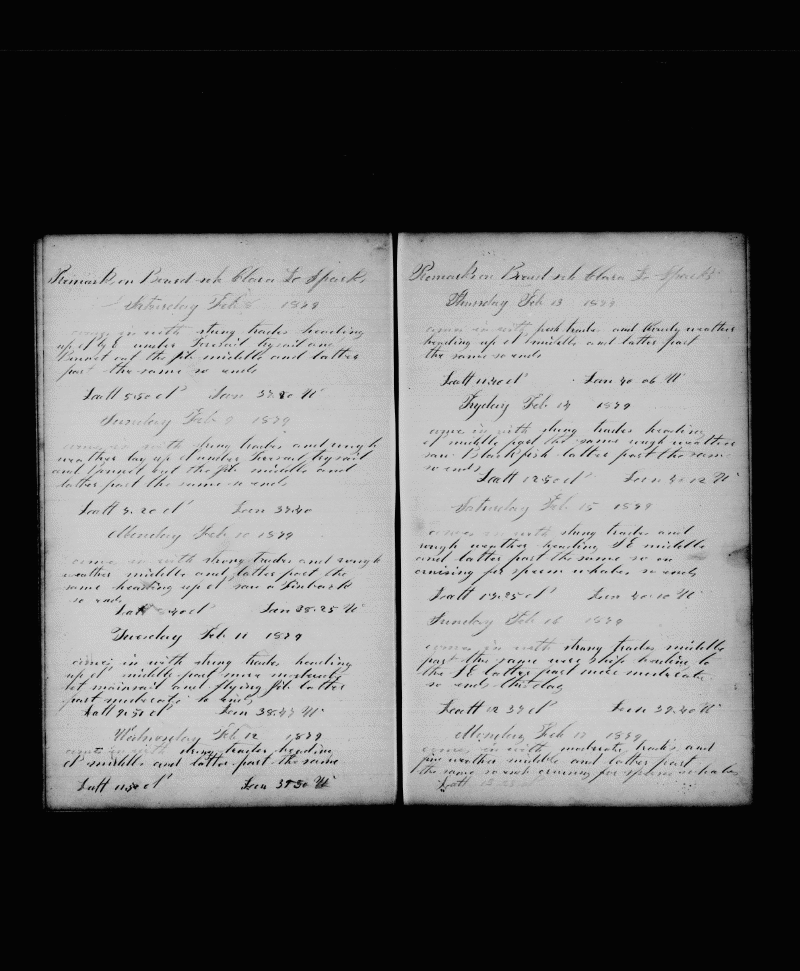 Remarks on Board sch Clara L Sparks
Saturday Feb 8 1879
comes in with strong trades heading
up under Foresail trysail and
out the jib middle and latter
part the same so ends
Latt 5.50 Lon 37.20 W
Sunday Feb 9 1879
comes in with strong trades and rough
weather lay up under Foresail trysail
and but the jib middle and
latter part the same so ends
Latt 7.20 Lon 37.40
Monday Feb 10 1879
comes in with strong trades and rough
weather middle and latter part the
same heading up saw a Finback
so ends
Latt Lon 38.25 W
Tuesday Feb 11 1879
comes in with strong trades heading
up middle part more moderate
set mainsail and flying jib latter
part moderate so ends
Latt 9.50 Lon 38.47 W
Wednesday Feb 12 1879
comes in with strong trades heading
middle and latter part the same
Latt 11.50 Lon 39.50 W
Remarks on Board sch Clara L Sparks
Thursday Feb 13 1879
comes in with fresh trades and weather
heading up middle and latter part
the same so ends
Latt 11.40 Lon 40.06 W
Fryday Feb 14 1879
comes in with strong trades heading
middle part the same rough weather
saw Blackfish latter part the same
so ends
Latt 12.50 Lon 40.12 W
Saturday Feb 15 1879
comes in with strong trades and
rough weather heading S E middle
and latter part the same so on
cruising for sperm whales so ends
Latt 13.25 Lon 40.10 W
Sunday Feb 16 1879
comes in with strong trades middle
part the same wore ship heading to
the S E latter part more moderate
so ends this day
Latt 12.37 Lon 39.40 W
Monday Feb 17 1879
comes in with moderate trades and
fine weather middle and latter part
the same so ends cruising for sperm whales
Latt 13